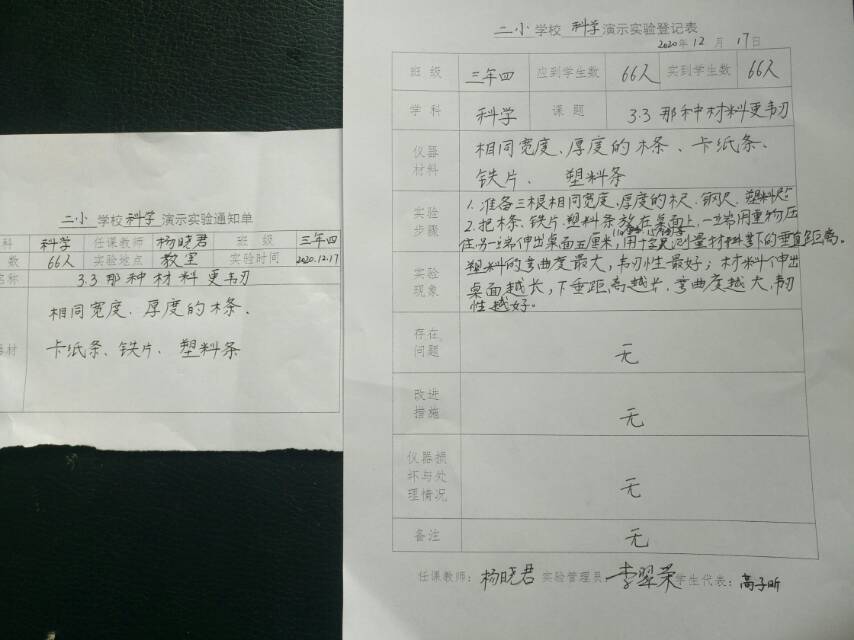 二小 学校 科学 演示实验通知单
科 科学 任课教师 杨晓君 班 级 三年四
数 66人 实验地点 教室 实验时间 2020.12.17
名称 3.3 那种材料更韧
器材 相同宽度、厚度的木条、
卡纸条、铁片、塑料条
二小 学校 科学 演示实验登记表
2020年 12 月 17日
班 级 三年四 应到学生数 66人 实到学生数 66人
学 科 科学 课 题 3.3 那种材料更韧
仪器材料 相同宽度、厚度的木条、卡纸条、
铁片、 塑料条
实验步骤 1. 准备三根相同宽度,厚度的木尺、钢尺、塑料尺
2. 把木条、铁片、塑料条放在桌面上,一端用重物压
住另一端伸出桌面五厘米,用十字尺测量材料下的垂直距离。
实验现象 塑料的弯曲度最大,韧性最好;材料伸出
桌面越长,下垂距离越长,弯曲度越大,韧
性越好。
存在问题 无
改进措施 无
仪器损坏与处理情况 无
备注 无
任课教师: 杨晓君 实验管理员: 李翠荣 学生代表: 高子昕